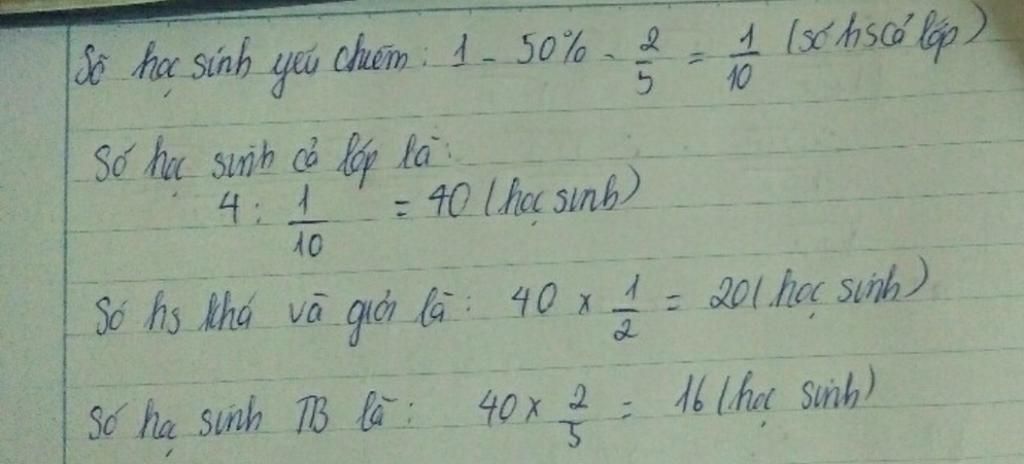 Số học sinh yếu chiếm: 1 - 50% - 2/5 = 1/10 (số hs cả lớp)
Số học sinh cả lớp là:
4 : 1/10 = 40 (học sinh)
Số hs khá và giỏi là: 40 x 1/2 = 20 (học sinh)
Số học sinh TB là: 40 x 2/5 = 16 (học sinh)